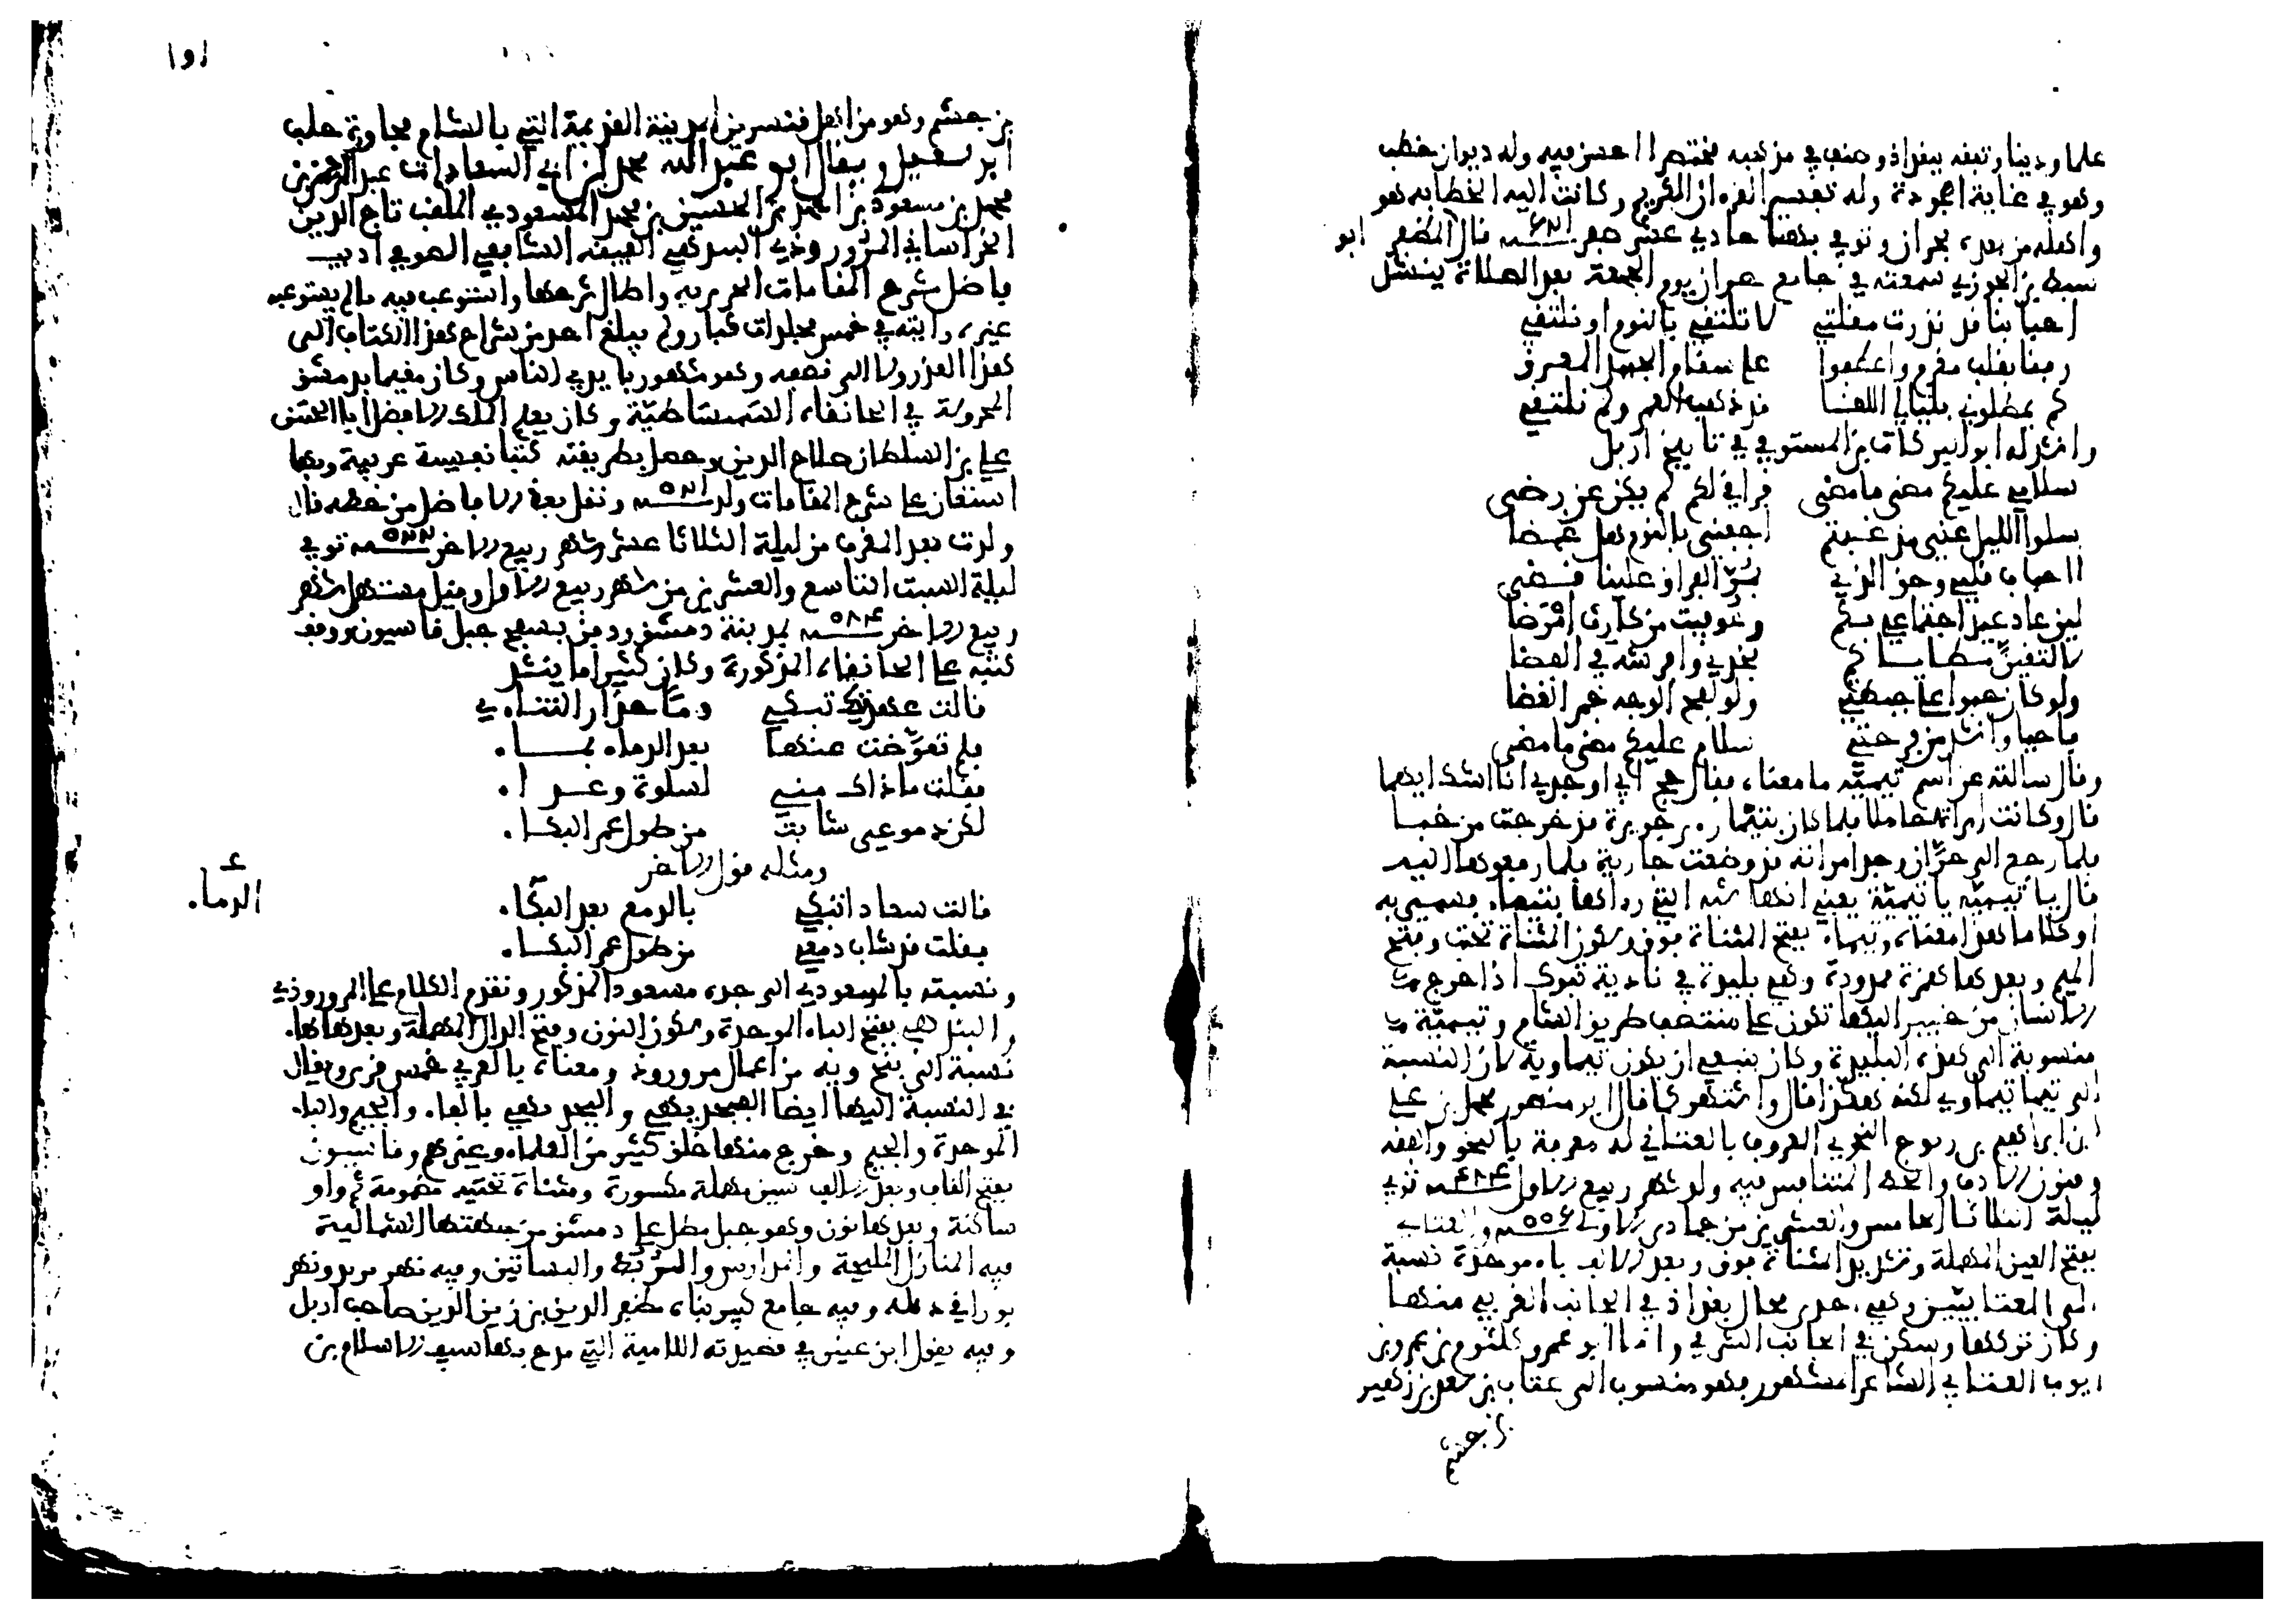 علما ودينا وتفقه ببغداذ وصنف في مذهبه مختصرا احسن فيه وله ديوان خطب
وهو في غاية الجودة وله تفسير القرءان الكريم وكانت اليه الخطابه هو
واهله من بعده بحران وتوفي بها حادي عشر صفر سنة قال المظفر ابو
سبط بن الجوزي سمعته في جامع حران يوم الجمعة بعد الصلاة ينشد
احبابنا قد نذرت مقلتي لا تلتقي بالنوم او نلتقي
رفقا بقلب مغرم واعطفوا على سقام الجسد المحرق
كم تمطلوني بليالي اللقا قد ذهب العمر ولم نلتقي
وانشد له ابو البركات بن المستوفي في تاريخ اربل
سلام عليكم مضى ما مضى فراقي لكم لم يكن عن رضى
سلوا الليل عني مذ غبتم اجفني بالنوم هل غمضا
ااحباب قلبي وحق الذي بمر الفراق علينا قضى
لين عاد عيد اجتماعي بكم وعوفيت من كل امرضا
لالتقين مطاياكم بخدي وافرشه في الفضا
ولو كان حبوا على جبهتي ولو لفح الوجه جمر الغضا
فاحيا وانشد من فرحتي سلام عليكم مضى ما مضى
وقال سالته عن اسم تيمية ما معناه فقال حج ابي او جدي انا اشك ايهما
قال وكانت امراته حاملا فلما كان بتيماء راى جويرة قد خرجت من خبا
فلما رجع الى حران وجد امراته قد وضعت جارية فلما رفعوها اليه
قال يا تيمية يا تيمية يعني انها تشبه التي رءاها بتيماء فسمي به
او كلاما هذا معناه وتيماء بفتح المثناة فوق وسكون المثناة تحت وفتح
الميم وبعدها همزة ممدودة وهي بليدة في بادية تبوك اذا خرج
الانسان من خيبر اليها تكون على منتصف طريق الشام وتيمية
منسوبة الى هذه البليدة وكان ينبغي ان يكون تيماوية لان النسبة
الى تيما تيماوي لكنه هكذا قال واشتهر كما قال ابو منصور محمد بن علي
ابن ابراهيم بن النحوي المعروف بالعتابي له معرفة بالنحو واللغه
وفنون الادب والخط المتنافس فيه ولد شهر ربيع الاول سنة ٤٨٤ توفي
ليلة الثلاثا الخامس والعشرين من جمادى الاولى سنة ٥٥٦ والعتابي
بفتح العين المهملة وتشديد المثناة فوق وبعد الالف باء موحدة نسبة
الى العتابيين وهي احدى محال بغداذ في الجانب الغربي منها
وكان تركها وسكن في الجانب الشرقي واما ابو عمرو كلثوم بن عمرو بن
ايوب العتابي الشاعر المشهور فهو منسوب الى عتاب بن سعد بن زهير
بن جشم
بن جشم وهو من اهل قنسرين المدينة القديمة التي بالشام مجاورة حلب
ابو سعيد ويقال ابو عبد الله محمد بن ابي السعادات عبد الرحمن بن
محمد بن مسعود بن احمد بن الحسين بن محمد المسعودي الملقب تاج الدين
الخراساني المروروذي البندهي الفقيه الشافعي الصوفي اديب
فاضل شرح المقامات الحريريه واطال شرحها واستوعب فيه ما لم يستوعبه
غيره رايته في خمس مجلدات كبار ولم يبلغ احد من شراح هذا الكتاب الى
هذا القدر ولا الى نصفه وهو مشهور بايدي الناس وكان مقيما بدمشق
المحروسة في الخانقاه السميساطية وكان يعلم الملك الافضل ابا الحسن
علي بن السلطان صلاح الدين وحصل بطريقته كتبا نفيسة غريبة وبها
استعان على شرح المقامات ولد سنة ٥٢١ ونقل بعض الافاضل من خطه قال
ولدت بعد المغرب من ليلة الثلاثا عشر شهر ربيع الاخر سنة ٥٢٢ توفي
ليلة السبت التاسع والعشرين من شهر ربيع الاول وقيل مستهل شهر
ربيع الاخر سنة ٥٨٤ بمدينة دمشق ودفن بسفح جبل قاسيون ووقف
كتبه على الخانقاه المذكورة وكان كثيرا ما ينشد
قالت عهدتك تبكي دما حذار التناءي
فلم تعوضت عنها بعد الدماء بماء
فقلت ما ذاك مني لسلوة وعزاء
لكن دموعي شابت من طول عمر البكاء
ومثله قول الاخر
قالت سعاد اتبكي بالدمع بعد البكاء
الدماء
فقلت قد شاب دمعي من طول عمر البكاء
ونسبته بالمسعودي الى جده مسعود المذكور وتقدم الكلام على المروروذي
والبندهي بفتح الباء الموحدة وسكون النون وفتح الدال المهملة وبعدها هاء
نسبة الى بنج ديه من اعمال مروروذ ومعناه بالعربي خمس قرى ويقال
في النسبة اليها ايضا الفنجديهي والبنجديهي بالفاء والجيم والباء
الموحدة والجيم وخرج منها خلق كثير من العلماء وغيرهم وقاسيون
بفتح القاف وبعد الالف سين مهملة مكسورة ومثناة تحتيه مضمومة ثم واو
ساكنة وبعدها نون وهو جبل مطل على دمشق من جهتها الشمالية
فيه المنازل المليحة والمدارس والترب والبساتين وفيه نهر يزيد ونهر
ثورا في ذيله وفيه جامع كبير بناه مظفر الدين بن زين الدين صاحب اربل
وفيه يقول ابن عنين في قصيدته اللامية التي مدح بها سيف الاسلام بن